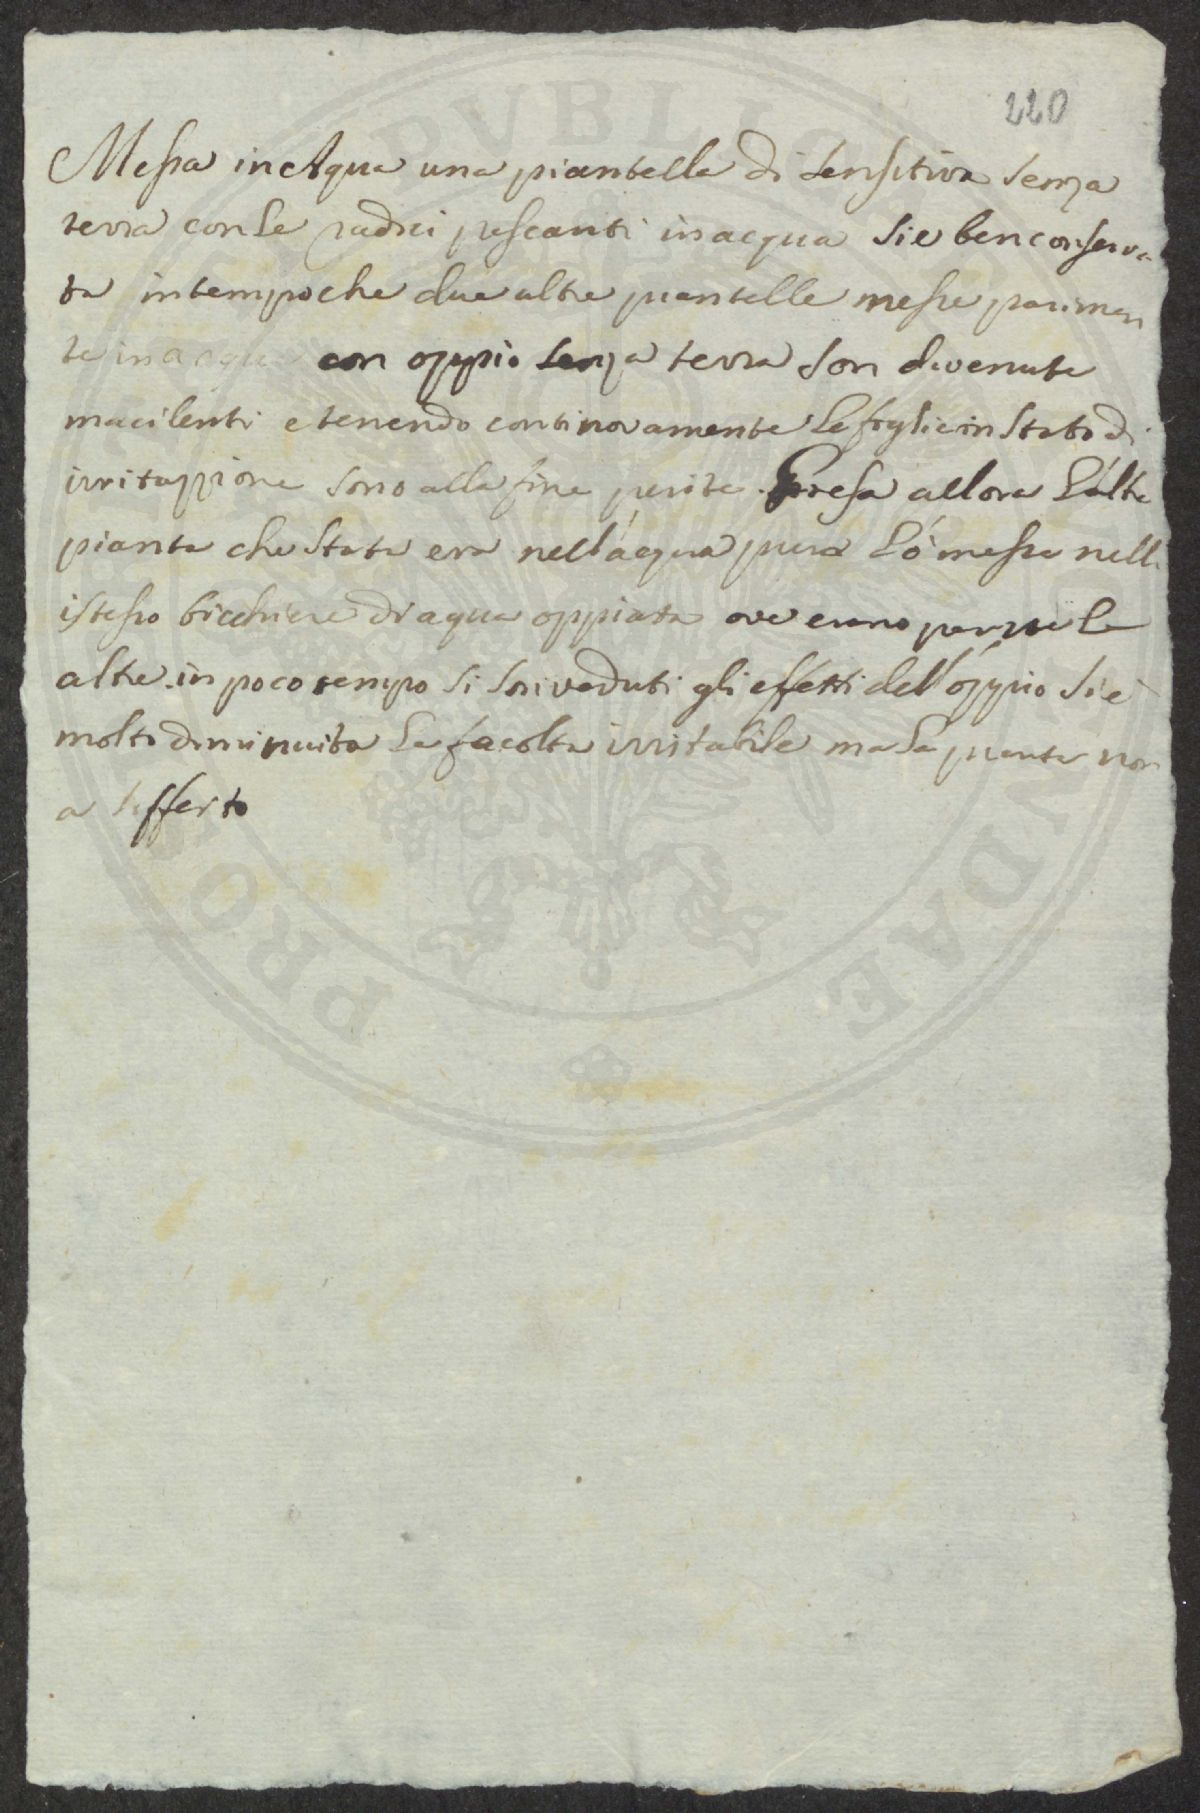 220
Messa in Aqua una piantella di sensitiva senza
terra con le radici pescanti in acqua si e ben conserva
ta in tempo che due altre piantelle messe parimen
te in acqua con oppio senza terra son divenute
macilenti e tenendo continovamente le foglie in stato di
irritazzione sono alla fine perite. Presa allora l'altra
pianta che stata era nell'acqua pura l'ó messa nell
istesso bicchiere di aqua oppiata ove erano perite le
altre. in poco tempo si son veduti gli effetti dell'oppio si é
molto diminuita la facolta irritabile ma la pianta non
a sofferto